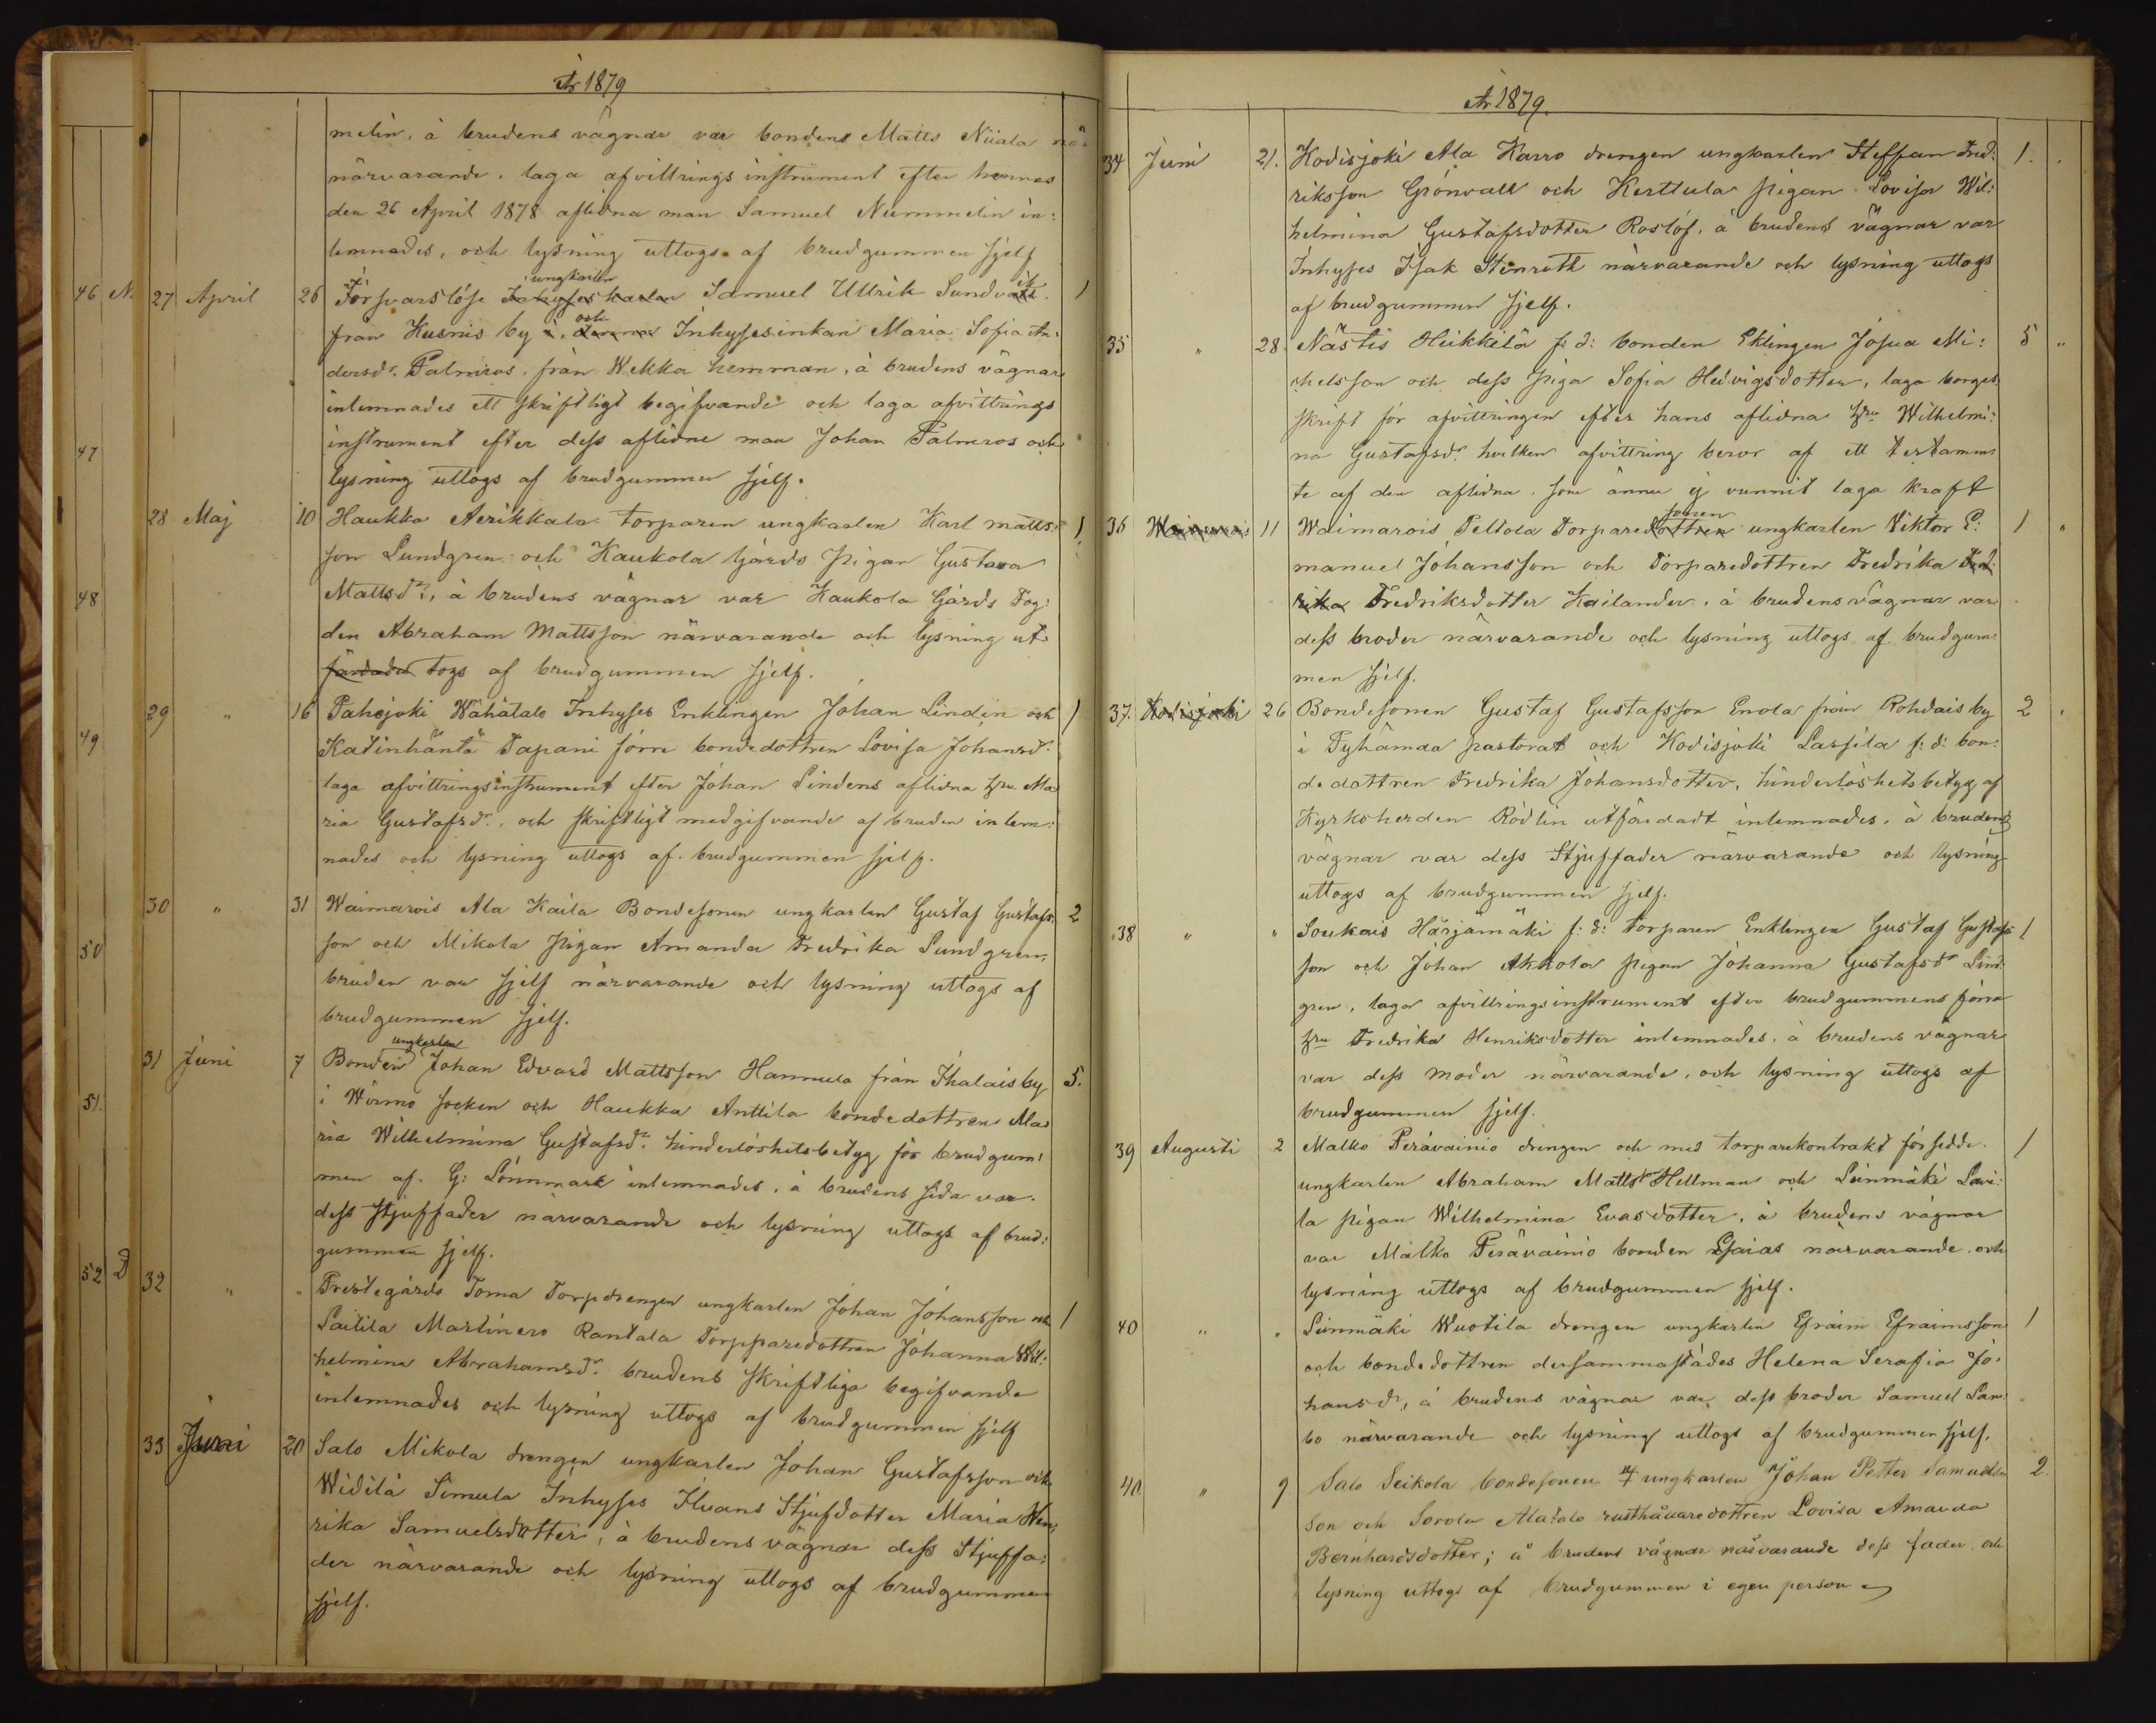 År 1879
melin, å brudens vägnar var bondens Matts Niiala
närvarande. laga afvittrings instrument efter hennes
den 26 April 1878 aflidna man Samuel Nummelin in:
lemnades, och lysning uttogs af brudgummen sjelf
46 27 April 26 Försvarslöse ungkarlen Samuel Ullrik
från Husnis by och Inhysesinkan Maria Sofia An:
dersdr. Palmros, från Wekka hemman, å brudens vägnar
inlemnades ett skriftligt begifvande och laga afvittrings
instrument efter dess aflidne man Johan Palmros och
47
lysning uttogs af brudgummen sjelf.
28 Maj 10 Haukka Aerikkala torparen ungkarlen Karl Matts: 1
son Lundgren och Kaukola Gårds pigan Gustava
48
Mattsdr, å brudens vägnar var Kaukola Gårds Fog:
den Abraham Mattsson närvarande och lysning ut:
togs af brudgummen sjelf.
29 " 16 Pahojoki Wähätalo Inhyses Enklingen Johan Linden och 1
49
Katinhäntä Tapani förre bondedottren Lovisa Johansdr.
laga afvittringsinstrument efter Johan Lindens aflidna hru Ma
ria Gustafsdr., och skriftligt medgifvande af bruden inlem:
nades och lysning uttogs af brudgummen sjelf.
30 " 31 Waimarois Ala Kaila Bondesonen ungkarlen Gustaf Gustafs: 2
50
son och Mikola pigan Amanda Fredrika Lundgren,
bruden var sjelf närvarande och lysning uttogs af
brudgummen sjelf.
31 Juni 7 Bonden ungkarlen Johan Edvard Mattsson Hannula från Ihalais by 5.
51.
i Wirmo socken och Haukka Anttila bondedottren Ma:
ria Wilhelmina Gustafsdr. hinderlöshetsbetyg för brudgum:
men af G: Lönnmark inlemnades, å brudens sida var
dess stjuffader närvarande och lysning uttogs af brud:
gummen sjelf.
52 32 " " Prestegårds Toma Torpdrengen ungkarlen Johan Johansson och 1
Laitila Martinero Rantala Torpparedottren Johanna Wil:
helmina Abrahamsdr. brudens skriftliga begifvande
inlemnades och lysning uttogs af brudgummen sjelf
33 Juni 20 Salo Mikola drengen ungkarlen Johan Gustafsson och
Widilä Simula Inhyses Iluans Stjufdotter Maria Hen:
rika Samuelsdotter, å brudens vägnar dess Stjuffa:
der närvarande och lysning uttogs af brudgummen
sjelf.
År 1879.
34 Juni 21. Kodisjoki Ala Karro drengen ungkarlen Steffan Fred: 1.
riksson Grönvall och Kerttula pigan Lovisa Wil:
helmina Gustafsdotter Roslöf, å brudens vägnar var
Inhyses Isak Stenroth närvarande och lysning uttogs
af brudgummen sjelf.
35 " 28. Nästis Heikkilä f: d: bonden Eklingen Josua Mi: 5 "
chelsson och dess piga Sofia Hedvigsdotter, laga borges
skrift för afvittringen efter hans aflidna hru Wilhelmi:
na Gustafsdr. hvilken afvittring beror af ett testamm:
te af den aflidna. som ännu ej vunnit laga kraft
36 Waimarois 11 Waimarois Peltola Torparesonen ungkarlen Viktor E: 1 "
manuel Johansson och Torparedottren Fredrika
Fredriksdotter Kailander, å brudens vägnar var
dess broder närvarande och lysning uttogs af brudgum:
men sjelf.
37. Kodisjoki 26 Bondesonen Gustaf Gustafsson Enola från Rohdais by 2
i Tyhämaa pastorat och Kodisjoki Lassila f: d: bon:
dedottren Fredrika Johansdotter, hinderlöshetsbetyg af
Kyrkoherden Rödlin utfärdadt inlemnades, å brudens
vägnar var dess Stjuffader närvarande och lysning
uttogs af brudgummen sjelf.
38 " " Soukais Härjämäki f: d: torparen Enklingen Gustaf Gustafs 1
son och Johan Akkola pigan Johanna Gustafsdr Lind:
gren, laga afvittringsinstrument efter brudgummens förra
hru Fredrika Henriksdotter inlemnades, å brudens vägnar
var dess moder närvarande, och lysning uttogs af
brudgummen sjelf.
39 Augusti 2 Malko Perävainio drengen och med torparekontrakt försedde 1
ungkarlen Abraham Mattss Hellman och Leinmäki Lavi:
la pigan Wilhelmina Evasdotter, å brudens vägnar
var Malko Perävainio bonden Esaias närvarande och
lysning uttogs af brudgummen sjelf.
40 " " Leinmäki Wuotila drengen ungkarlen Efraim Efraimsson 1
och bondedottren dersammastädes Helena Serafia Jo:
hansdr, å brudens vägnar var dess broder Samuel Lam:
bo närvarande och lysning uttogs af brudgummen sjelf.
40. " 9 Salo Seikola bondesonen ungkarlen Johan Petter Samuels 2.
son och Sorola Alatalo rusthållaredottren Lovisa Amanda
Bernhardsdotter; å brudens vägnar närvarande dess fader och
lysning uttogs af brudgummen i egen person